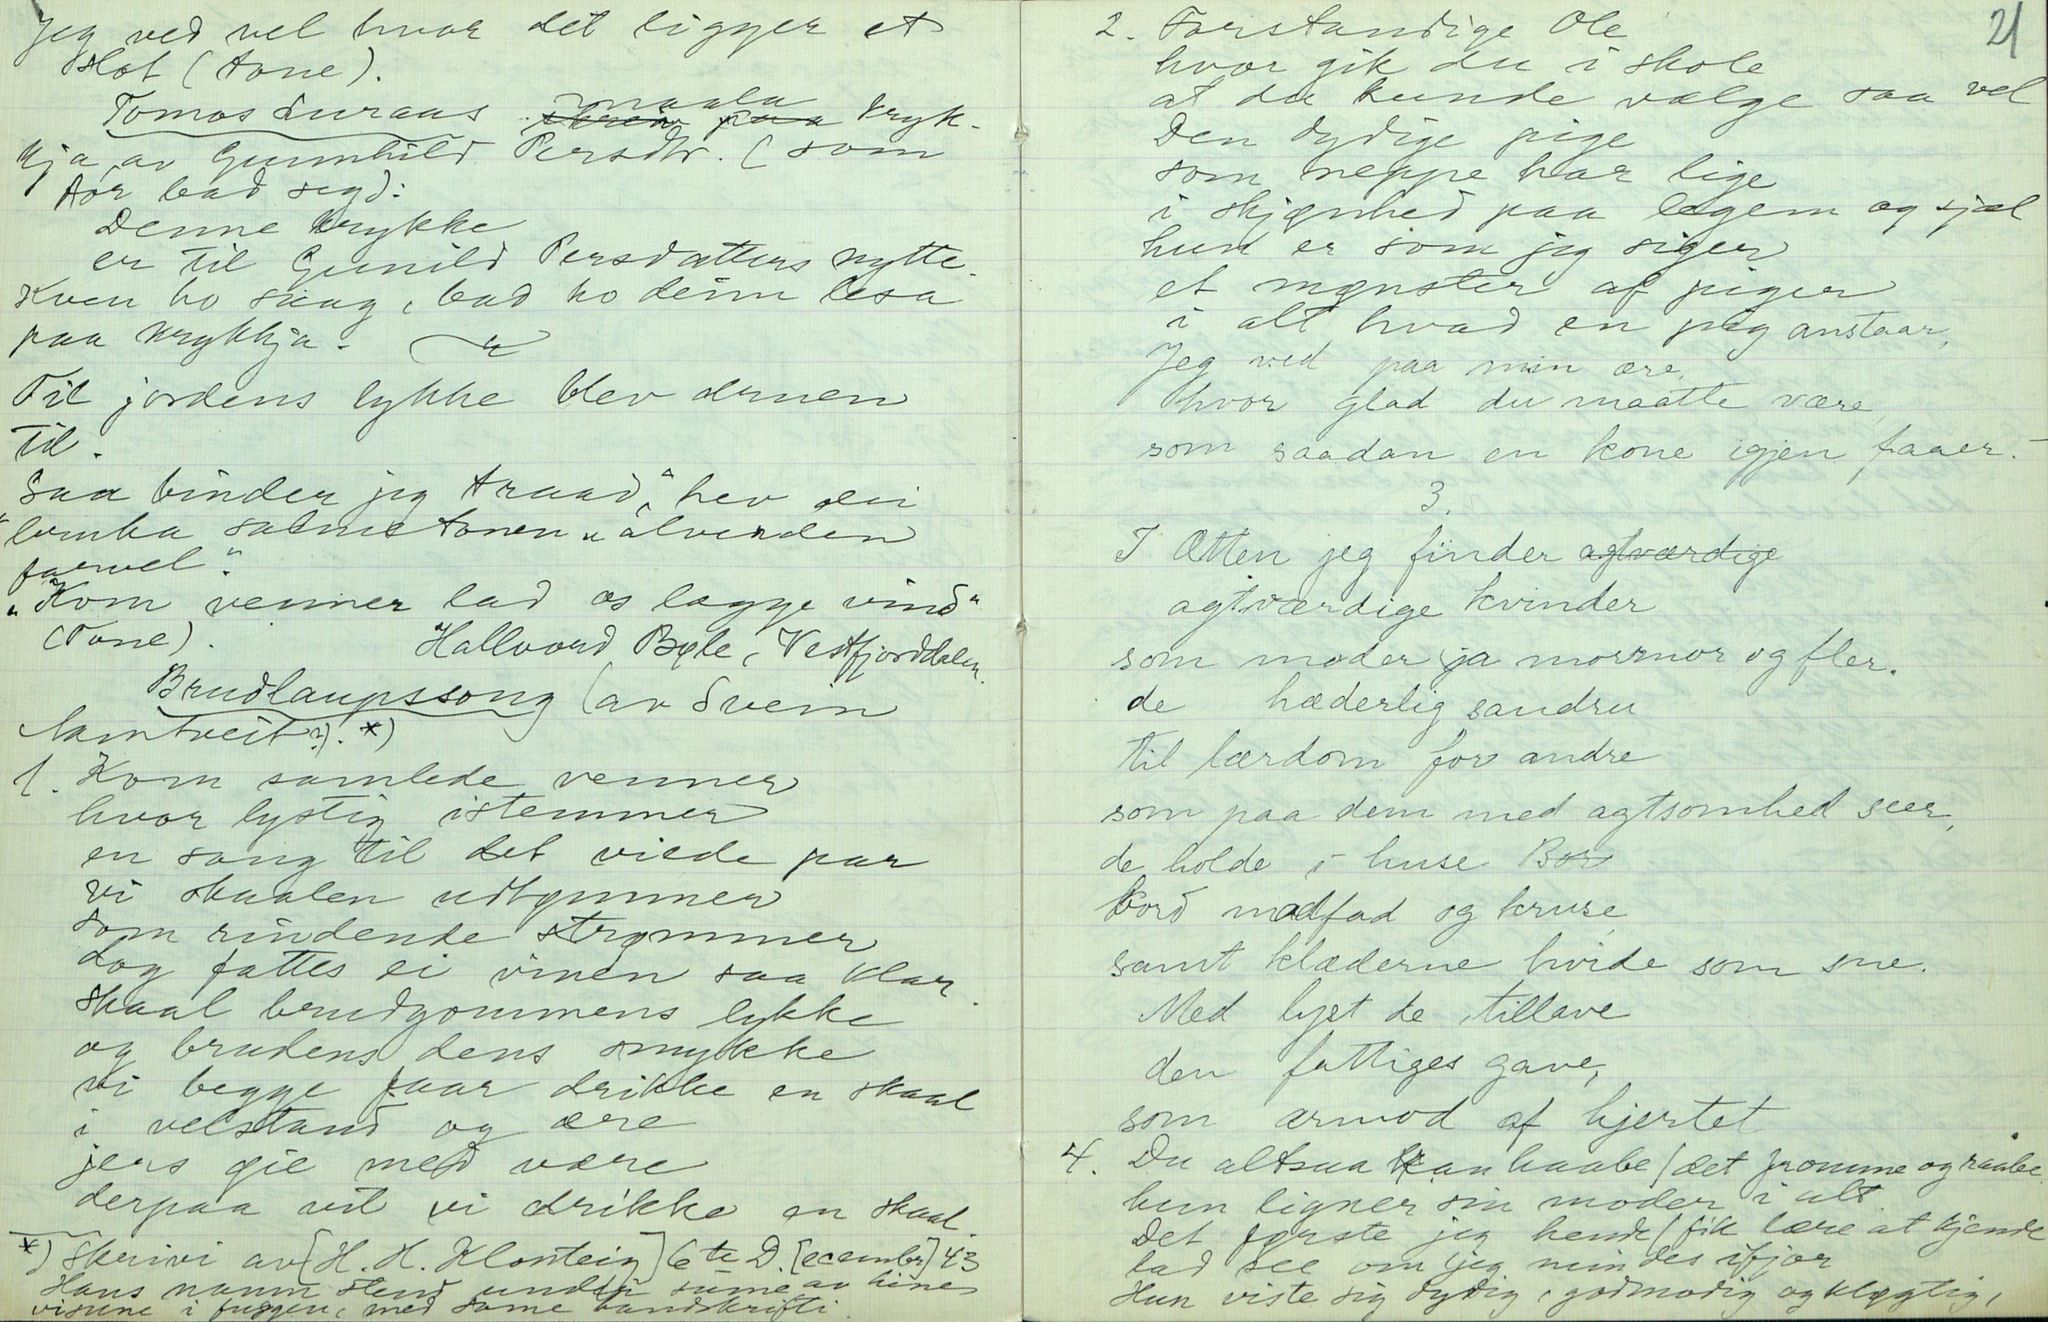 Jeg ved vel hvor det ligger et
slot (tone).
Tomos Luraas maala kryk-
kja av Gunnhild Persdtr. (som
før bad seg):
Denne krykke
er til Gunild Persdatters nytte.
Kven ho saag, bad ho deim lesa
paa krykkja.
Til jordens lykke blev druen
til.
Saa binder jeg traad," hev ein
bruka salmetonen "Alverden
farvel".
"Kom venner lad os lægge vind"
(Tone). Hallvord Bøle, Vestfjorddalen.
Brudlaupssong (av Svein
Namtveit?). *)
1. Kom samlede venner
hvor lystig istemmer
en sang til det viede par
vi skaalen udtømmer
som rindende strømmer
dog fattes ei vinen saa klar.
Skaal brudgommens lykke
og brudens dens smykke
vi begge paar drikke en skaal
i velstand og ære
jers gie med være
derpaa vil vi drikke en skaal.
*) Skrivi av [H. H. Klonteig] 6te D. [ecember] 43
Hans namn stend under sume av hine
visune i fuggen, med same handskrifti.
21
2. Forstandige Ole
hvor gik du i skole
at du kunde vælge saa vel
Den dydige pige
som neppe har lige
i skjønhed paa legem og sjæl
hun er som jeg siger
et mønster af piger
i alt hvad en pig anstaar,
Jeg ved paa min ære,
hvor glad du maatte være,
som saadan en kone igjen faaer.-
3.
I Ætten jeg finder agtværdige
agtværdige kvinder
som moder ja mormor og fler.
de hæderlig sandru
til lærdom for andre
som paa dem med agtsomhed seer,
de holde i huse Bor
bord madfad og kruse,
samt klæderne hvide som sne.
Med lyst de tillave
den fattiges gave,
som armod af hjertet
4. Du altsaa kan haabe / det fromme og raabe
hun ligner sin moder i alt.
Det første jeg hende / fik lære at kjende
lad see om jeg mindes ifjor
Hun viste sig dydig, godmodig og kløgtig,